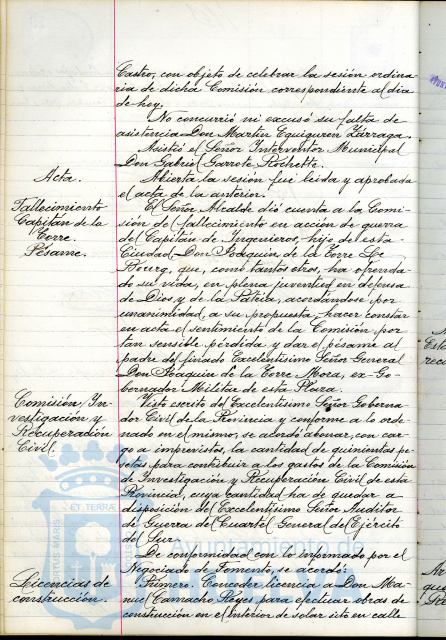 Castro, con objeto de celebrar la sesión ordina-
ria de dicha Comisión correspondiente al dia
de hoy.
No concurrió ni excusó su falta de
asistencia Don Martin Equiguren Zárraga.
Asistió el Señor Interventor Municipal
Don Gabriel Garrote Rochette.
Acta.
Abierta la sesión fué leida y aprobada
el acta de la anterior.
Fallecimiento
Capitán de la
Torre.
Pésame.
El Señor Alcalde dió cuenta a la Comi-
sión del fallecimiento en acción de guerra
del Capitán de Ingenieros, hijo de esta
Ciudad, Don Joaquin de la Torre Le
Bourg, que, como tantos otros, ha ofrenda-
do su vida, en plena juventud en defensa
de Dios y de la Patria, acordándose por
unanimidad, a su propuesta, hacer constar
en acta el sentimiento de la Comisión por
tan sensible pérdida y dar el pésame al
padre del finado Excelentisimo Señor General
Don Joaquin de la Torre Mora, ex-Go-
bernador Militar de esta Plaza.
Comisión, In-
vestigación y
Recuperación
Civil.
Visto escrito del Excelentisimo Señor Goberna-
dor Civil de la Provincia y conforme a lo orde-
nado en el mismo, se acordó abonar, con car-
go a imprevistos, la cantidad de quinientas pe-
setas para contribuir a los gastos de la Comisión
de Investigación y Recuperación Civil de esta
Provincia, cuya cantidad ha de quedar a
disposición del Excelentisimo Señor Auditor
de Guerra del Cuartel General del Ejército
del Sur.
Licencias de
construcción.
De conformidad con lo informado por el
Negociado de Fomento, se acordó:
Primero. Conceder licencia a Don Ma-
nuel Camacho Reyes, para efectuar obras de
construcción en el interior de solar sito en calle
ET TERRAE
Ayuntamiento de